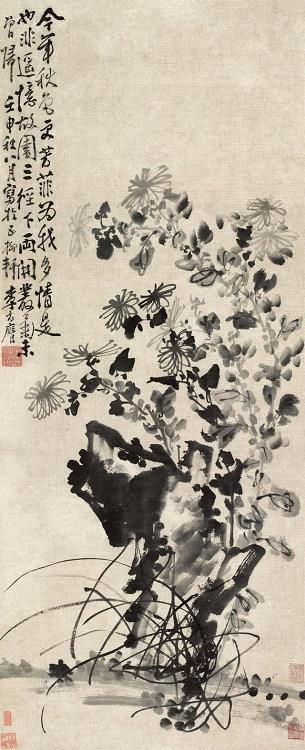 今年秋色更芳菲为我多情是
也非遥忆故园三径下両開叢菊未
曽歸 壬申秋八月寫於五柳軒 李方膺